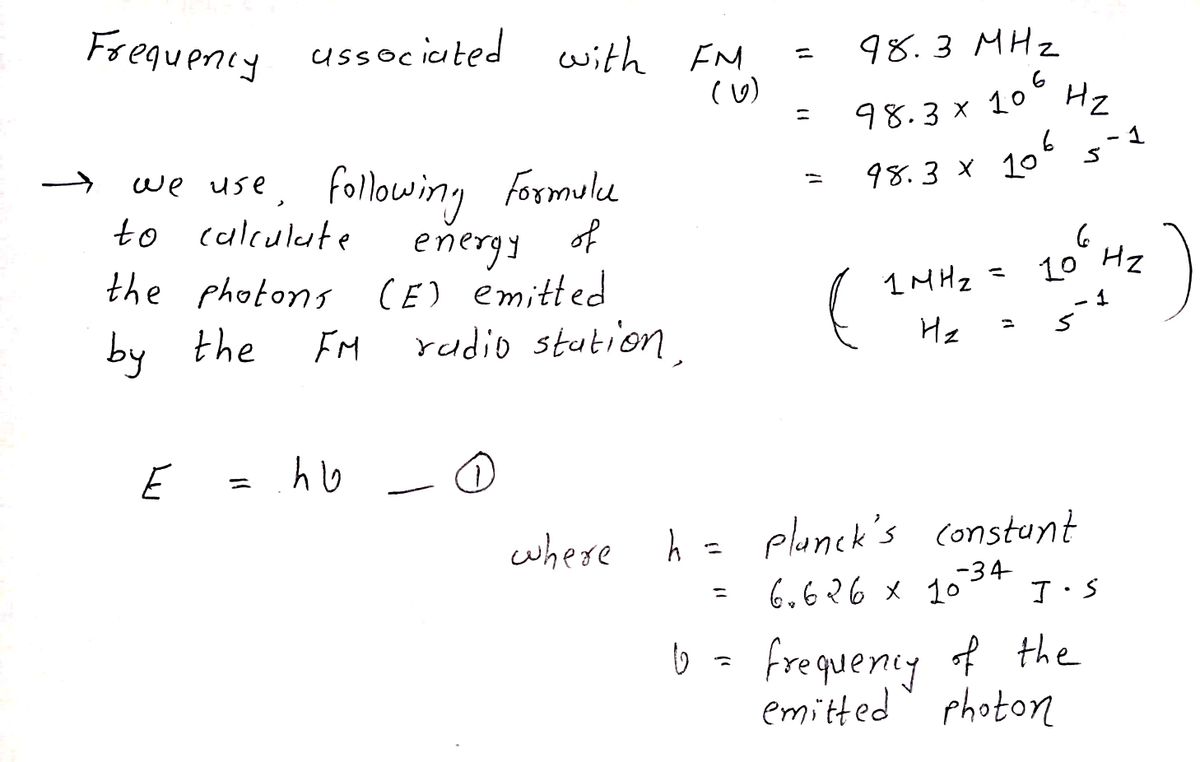 Frequency associated with FM = 98.3 MHz
(υ) = 98.3 × 10⁶ Hz
= 98.3 × 10⁶ s⁻¹
→ we use, following formula
to calculate energy of
the photons (E) emitted
by the FM radio station,
( 1 MHz = 10⁶ Hz
Hz = s⁻¹ )
E = hυ — ①
where h = planck's constant
= 6.626 × 10⁻³⁴ J·s
υ = frequency of the
emitted photon